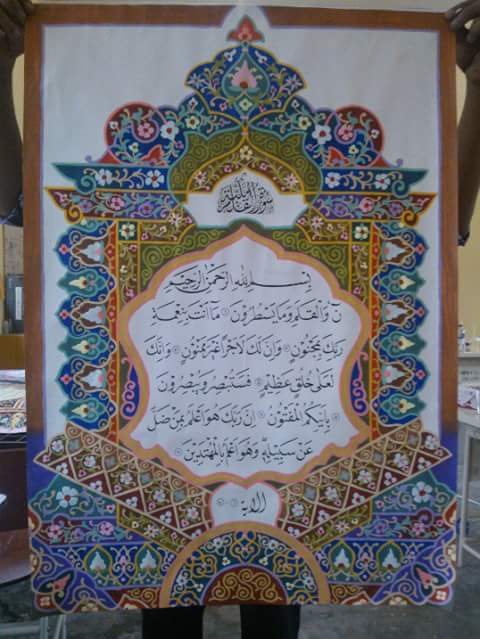 سورة القلم
بِسْمِ اللهِ الرَّحْمٰنِ الرَّحِيْمِ
نۤ وَالْقَلَمِ وَمَا يَسْطُرُوْنَ ۝ مَآ اَنْتَ بِنِعْمَةِ
رَبِّكَ بِمَجْنُوْنٍ ۝ وَاِنَّ لَكَ لَاَجْرًا غَيْرَ مَمْنُوْنٍ ۝ وَاِنَّكَ
لَعَلٰى خُلُقٍ عَظِيْمٍ ۝ فَسَتُبْصِرُ وَيُبْصِرُوْنَ
۝ بِاَيِّكُمُ الْمَفْتُوْنُ ۝ اِنَّ رَبَّكَ هُوَ اَعْلَمُ بِمَنْ ضَلَّ
عَنْ سَبِيْلِهٖ وَهُوَ اَعْلَمُ بِالْمُهْتَدِيْنَ ۝
الاية